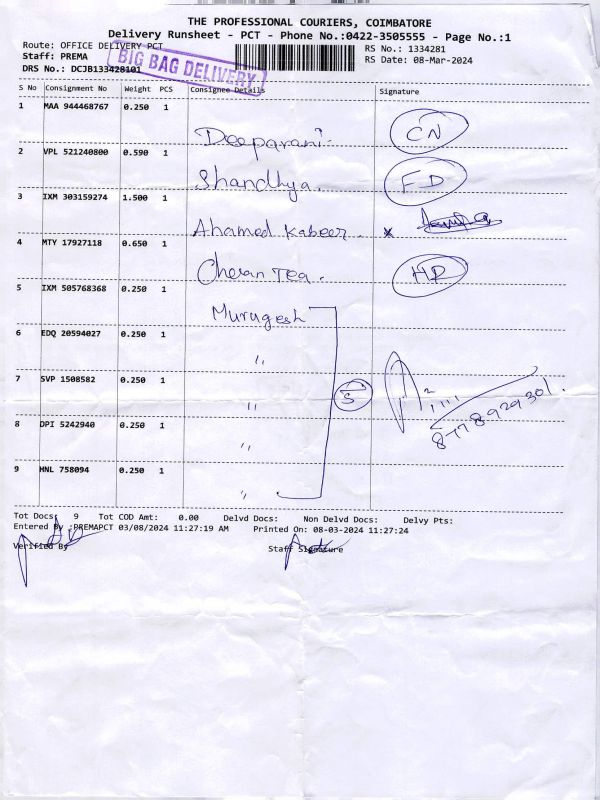 THE PROFESSIONAL COURIERS, COIMBATORE
Delivery Runsheet - PCT - Phone No.:0422-3505555 - Page No.:1
Route: OFFICE DELIVERY PCT RS No.: 1334281
Staff: PREMA RS Date: 08-Mar-2024
DRS No.: DCJB133428101
BIG BAG DELIVERY
S No Consignment No Weight PCS Consignee Details Signature
1 MAA 944468767 0.250 1
Deeparani. CN
2 VPL 521240800 0.590 1
Shandhya. FD
3 IXM 303159274 1.500 1
Ahamed Kabeer. x
4 MTY 17927118 0.650 1
Cheran Tea. HD
5 IXM 505768368 0.250 1
Murugesh
6 EDQ 20594027 0.250 1
"
7 SVP 1508582 0.250 1
" 5
8 DPI 5242940 0.250 1
" 8778929301.
9 HNL 758094 0.250 1
"
Tot Docs: 9 Tot COD Amt: 0.00 Delvd Docs: Non Delvd Docs: Delvy Pts:
Entered By :PREMAPCT 03/08/2024 11:27:19 AM Printed On: 08-03-2024 11:27:24
Verified By Staff Signature